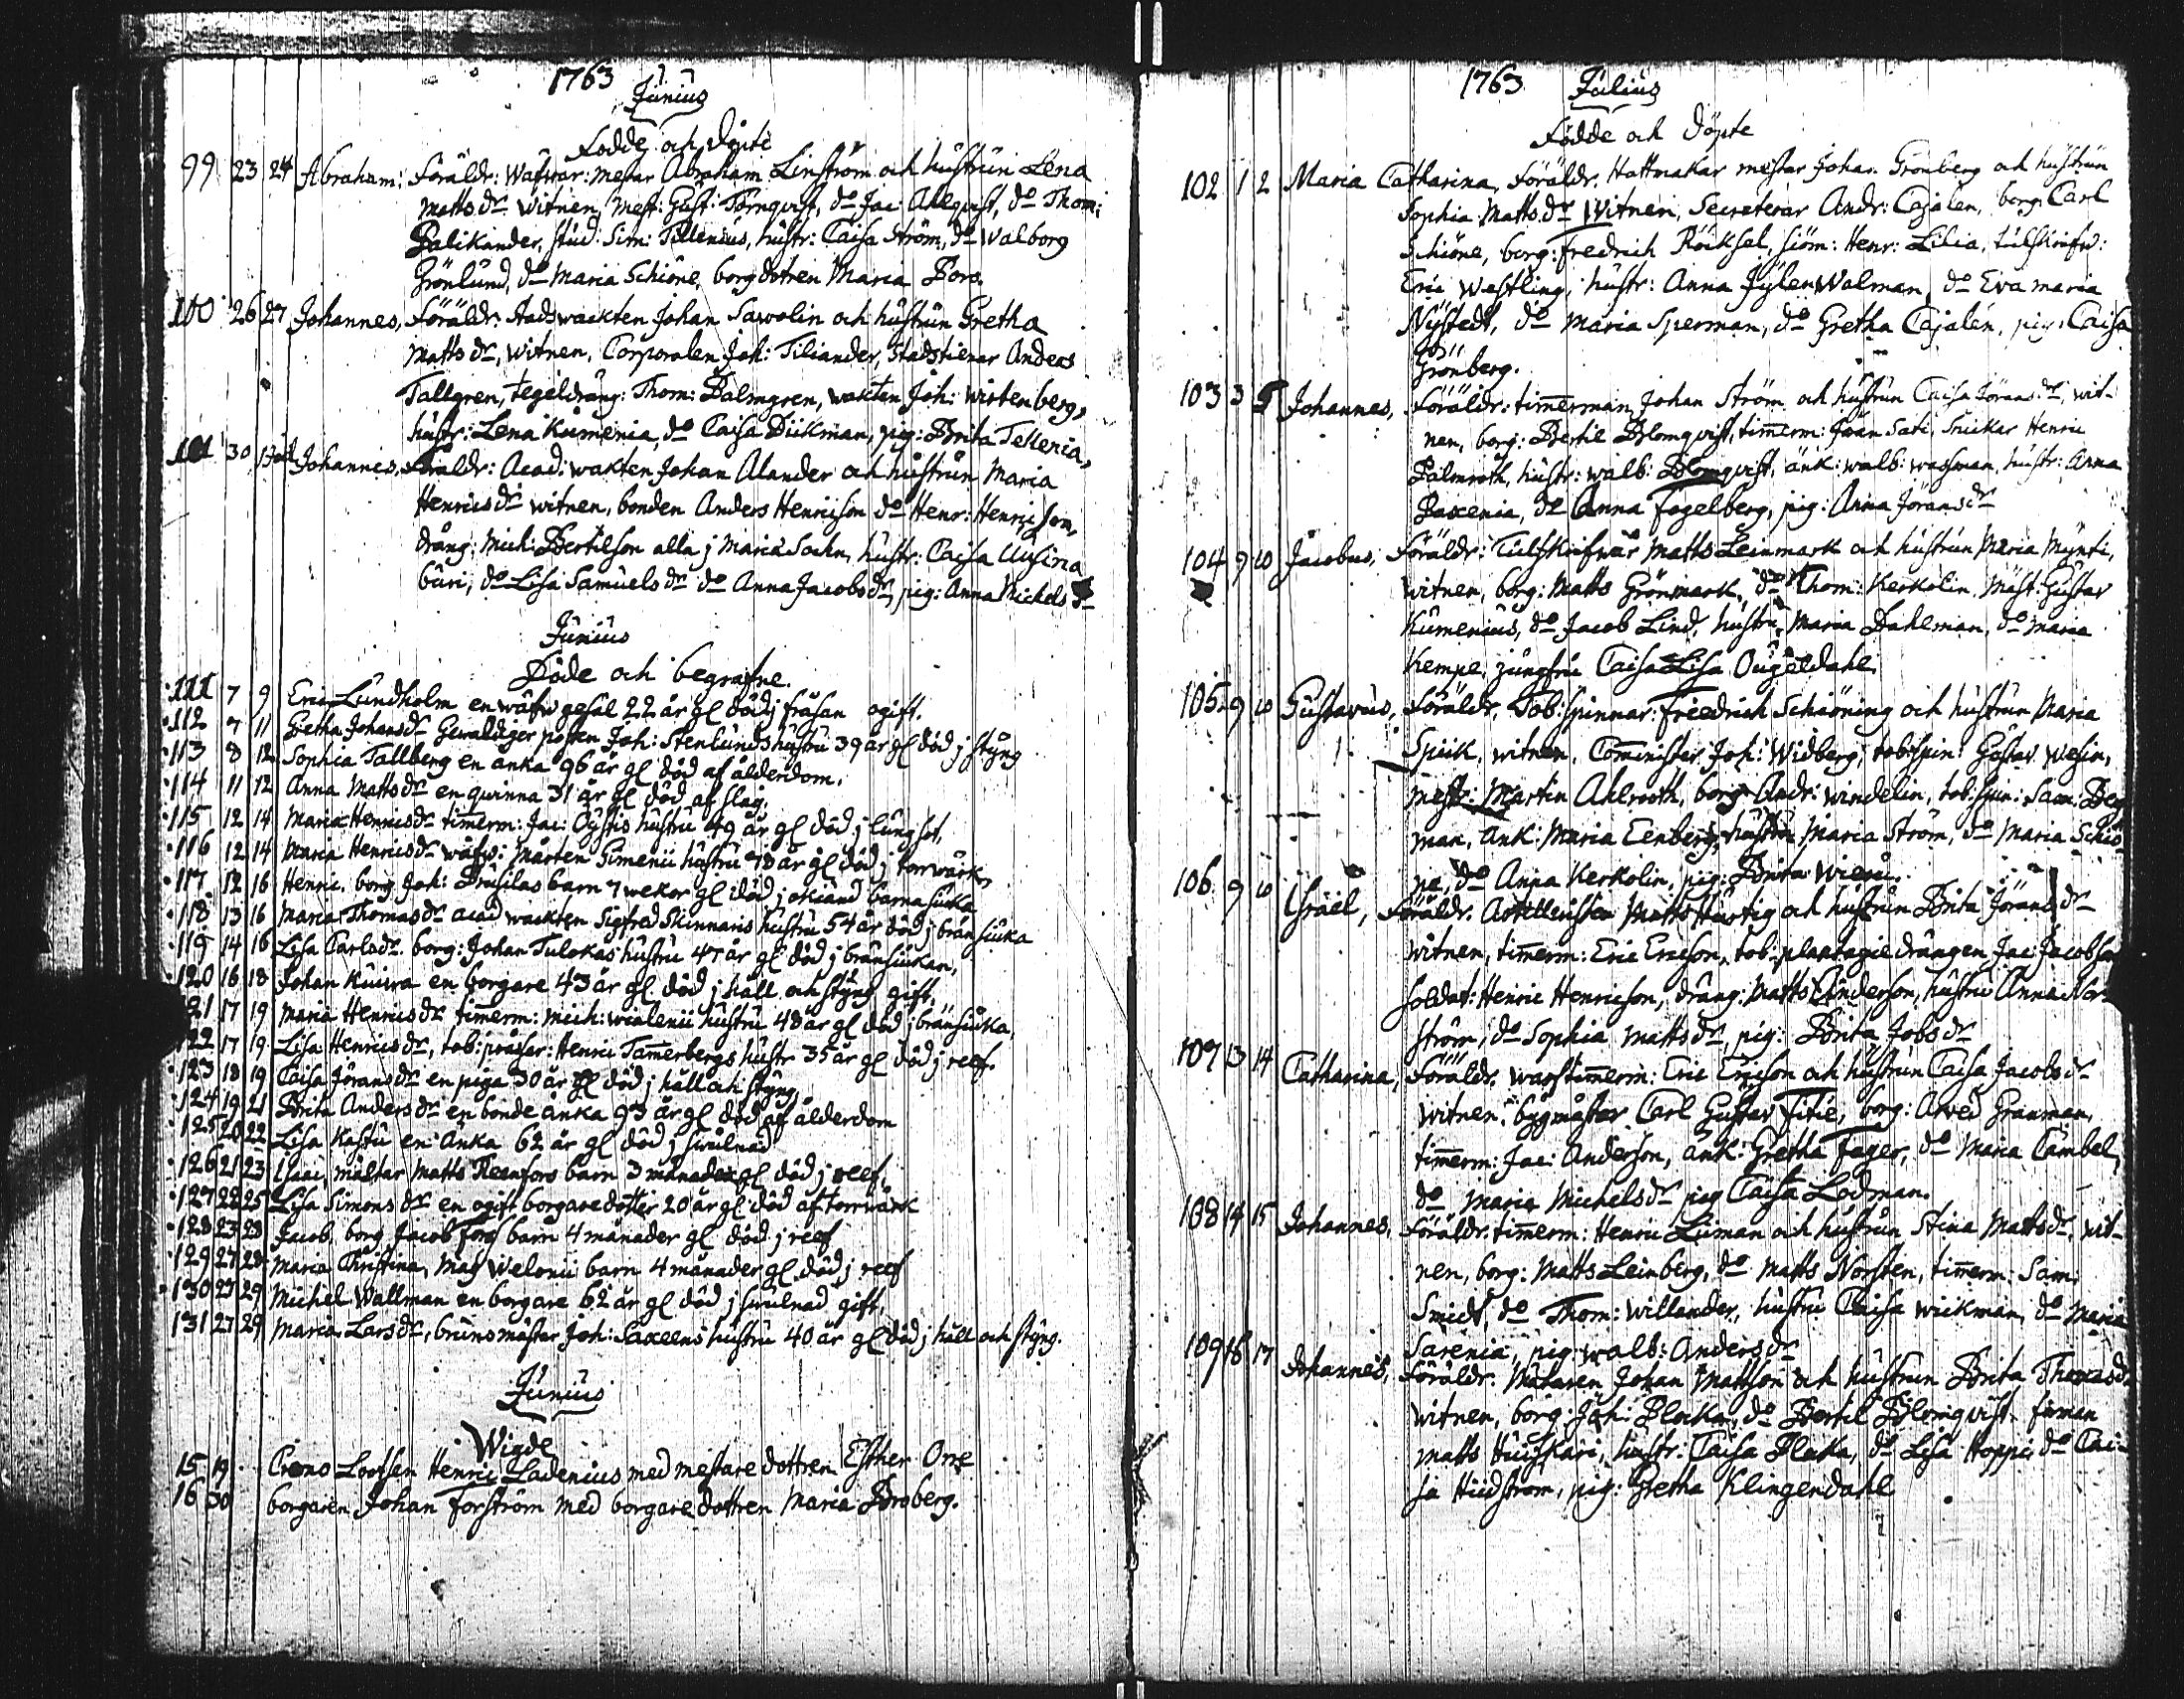 1763
Junius
Födde och Döpte
99 23 24 Abraham: Föräldr: Wäfvar: mestar Abraham Linström och hustrun Lena
Matts dr. witnen, Mest: Gust: Törnqvist, do Jac: Allqvist, do Thom:
Palikander, stud: Sim: Tillenius, hustr: Caisa Ström, do Walborg
Grönlund, do Maria Schiöne, borg dotren Maria Bors.
100 26 27 Johannes, Föräldr: Stadswackten Johan Sawolin och hustrun Gretha
Matts dr, witnen, Corporalen Joh: Tiliander, Stadstienar Anders
Tallgren, tegeldräng: Thom: Palmgren, wakten Joh: wirtenberg,
hustr: Lena Kumenia, do Caisa Diikman, pig: Brita Telleria,
101 30 Johannes, Föräldr: Acad: wakten Johan Alander och hustrun Maria
Henrics dr witnen, bonden Anders Henricson do Henr: Henricson,
dräng: Mich: Bertilson alla j Maria Sochn, hustr: Caisa Uusina
buri, do Lisa Samuels dr do Anna Jacobs dr, pig: Anna Michels dr
Junius
Döde och begrafne.
111 7 9 Eric Lundholm en wäfw gesäl 22 år gl död j fråsan ogift.
112 7 11 Gretha Johans dr Gewaldiger posten Joh: Stenlunds hustru 39 år gl död j styng
113 8 12 Sophia Tallberg en änka 96 år gl död af ålderdom.
114 11 12 Anna Matts dr en qwinna 31 år gl död af slag.
115 12 14 Maria Henrics dr timerm: Jac: Öystis hustru 49 år gl död j lungsot,
116 12 14 Maria Henrics dr wäfw: Mårten Simenii hustru 78 år gl död j torrwärk,
117 12 16 Henric, borg Joh: Brusilas barn 7 wekor gl död j okiand barnasiuka
118 13 16 Maria Thomas dr acad wackten Sigfred Skinnaris hustru 54 år död j bränsiuka
119 14 16 Lisa Carls dr. borg: Johan Tulokas hustru 47 år gl död j bränsiukan,
120 16 18 Johan Kuivra en borgare 43 år gl död j håll och styng gift,
121 17 19 Maria Henrics dr timerm: Mich: wialenii hustru 48 år gl död j bränsiuka,
122 17 19 Lisa Henrics dr, tob: präser: Henric Tamerbergs hustr 35 år gl död j reef.
123 18 19 Caisa Jörans dr en piga 30 år gl död j håll och styng,
124 19 21 Brita Anders dr en bonde änka 93 år gl död af ålderdom
125 20 22 Lisa Kastu en änka 62 år gl död j swulnad
126 21 23 Isaac, mästar Matts Reenfors barn 3 månader gl död j reef,
127 22 25 Lisa Simons dr en ogift borgare dotter 20 år gl död af torrwärk
128 23 28 Jacob, borg Jacob Fors barn 4 månader gl död j reef
129 27 28 Maria Christina, Mag Welonii barn 4 månader gl död j reef
130 27 29 Michel Wallman en borgare 62 år gl död j swulnad gift,
131 27 29 Maria Lars dr, brunsmästar Joh: Saxeens hustru 40 år gl död j håll och styng.
Junius
Wigde
15 19 Crono Lootsen Henric Ladenius med mestare dottren Esther One
16 30 borgaren Johan Forström med borgare dottren Maria Broberg.
1763 Julius
Födde och Döpte
102 1 2 Maria Catharina, Föräldr. Hattmakar mestar Johan Grönberg och hustrun
Sophia Matts dr Witnen, Secreterar Andr: Cajalen, borg: Carl
Schiöne, borg: Fredrich Röiksel, siöm: Henr: Lilia, tulskrifw:
Eric Westling, hustr: Anna Jylen Walman, do Eva maria
Nystedt, do Maria Sperman, do Gretha Cajalen, pig: Caisa
Grönberg.
103 3 5 Johannes, Föräldr: timerman Johan Ström och hustrun Caisa Jörans dr, wit-
nen, borg: Bertil Blomqvist, timerm: Jöan Sati, Snickar Henric
Palmroth, hustr: walb: Blomqvist, änk: walb: wassman, hustr: Anna
Paxenia, do Anna Fogelberg, pig: Anna Jörans dr
104 9 10 Jacobus, Föräldr: Tulskrifwar Matts Leinmark och hustrun Maria Mynti,
witnen, borg: Matts Grönmark, do Thom: Kerkolin, Mäst: Gustav
Kumenius, do Jacob Lind, hustru Maria Dahlman, do Maria
Kempe, jungfru Caisa Lisa Ougeldahl.
105 9 10 Gustavus, Föräldr, Tob: spinnar: Friedrich Schiöning och hustrun Maria
Spiik, witnen, Cominister Joh: Widberg, tob: spin: Gustav Wesin,
mest: Martin Ahlrooth, borg Andr: windelin, tob: spin: Sam: Beg
man, Änk: Maria Eenberg, hustru Maria Ström, do Maria Schiö-
ne, do Anna Kerkolin, pig: Brita Wieru.
106 9 10 Israel, Föräldr. Artilleristen Matts Hurtig och hustrun Brita Jörans dr
witnen, timerm: Eric Ericson, tob: plantagie drängen Jac: Jacobson
soldat: Henric Henricson, dräng: Matts Anderson, hustru Anna Nor-
ström, do Sophia Matts dr, pig: Brita Jobs dr
107 13 14 Catharina, Föräldr. warfstimerm: Eric Ericson och hustrun Caisa Jacobs dr
witnen, bygmästar Carl Gustav Fitie, borg: Arved Granman,
timerm: Jac: Anderson, änk: Gretha Fager, do Maria Cambel,
do Maria Michels dr pig Caisa Lodman.
108 14 15 Johannes, Föräldr. timerm: Henric Liiman och hustrun Stina Matts dr, wit-
nen, borg: Matts Leinberg, do Matts Norsten, timerm: Sam:
Smidt, do Thom: willander, hustru Caisa wiikman, do Maria
Sarenia, pig walb: Anders dr
109 16 17 Johannes, Föräldr: Målaren Johan Mattson och hustrun Brita Thomas dr
witnen, borg: Joh: Plocka, do Bertil Blomqvist, firman
Matts Huiskari, hustr: Caisa Plaka, do Lisa Hoppi do Cai-
sa Hiidström, pig: Gretha Klingendahl